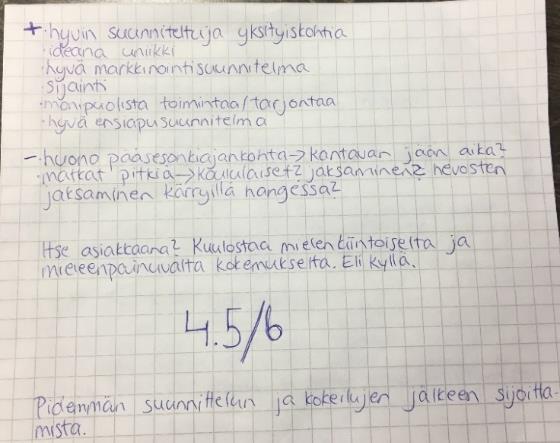 + ·hyvin suunniteltuja yksityiskohtia
·ideana uniikki
·hyvä markkinointisuunnitelma
·sijainti
·monipuolista toimintaa/tarjontaa
·hyvä ensiapusuunnitelma
- ·huono pääsesonkiajankohta→kantavan jään aika?
·matkat pitkiä→koululaiset? jaksaminen? hevosten
jaksaminen kärryillä hangessa?
Itse asiakkaana? Kuulostaa mielenkiintoiselta ja
mieleenpainuvalta kokemukselta. Eli kyllä.
4.5/6
Pidemmän suunnittelun ja kokeilujen jälkeen sijoitta-
mista.